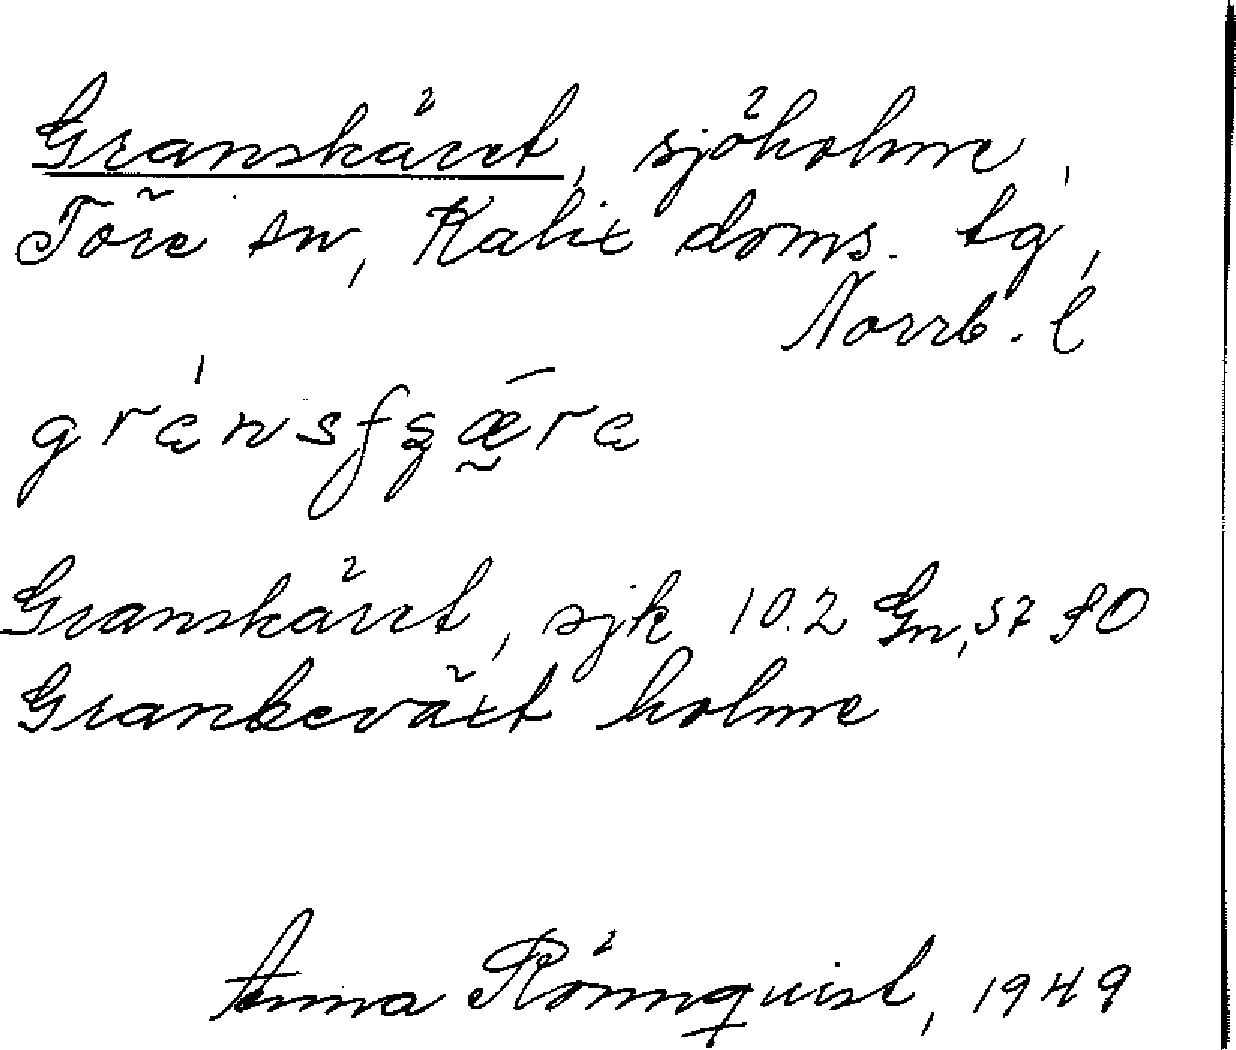 Granskäret, sjöholme,
Töre sn, Kalix doms. tg,
Norrb. l
Granskäret, sjk 10.2 Gn, 57 80
Granbeväxt holme
Anna Rönnquist, 1949